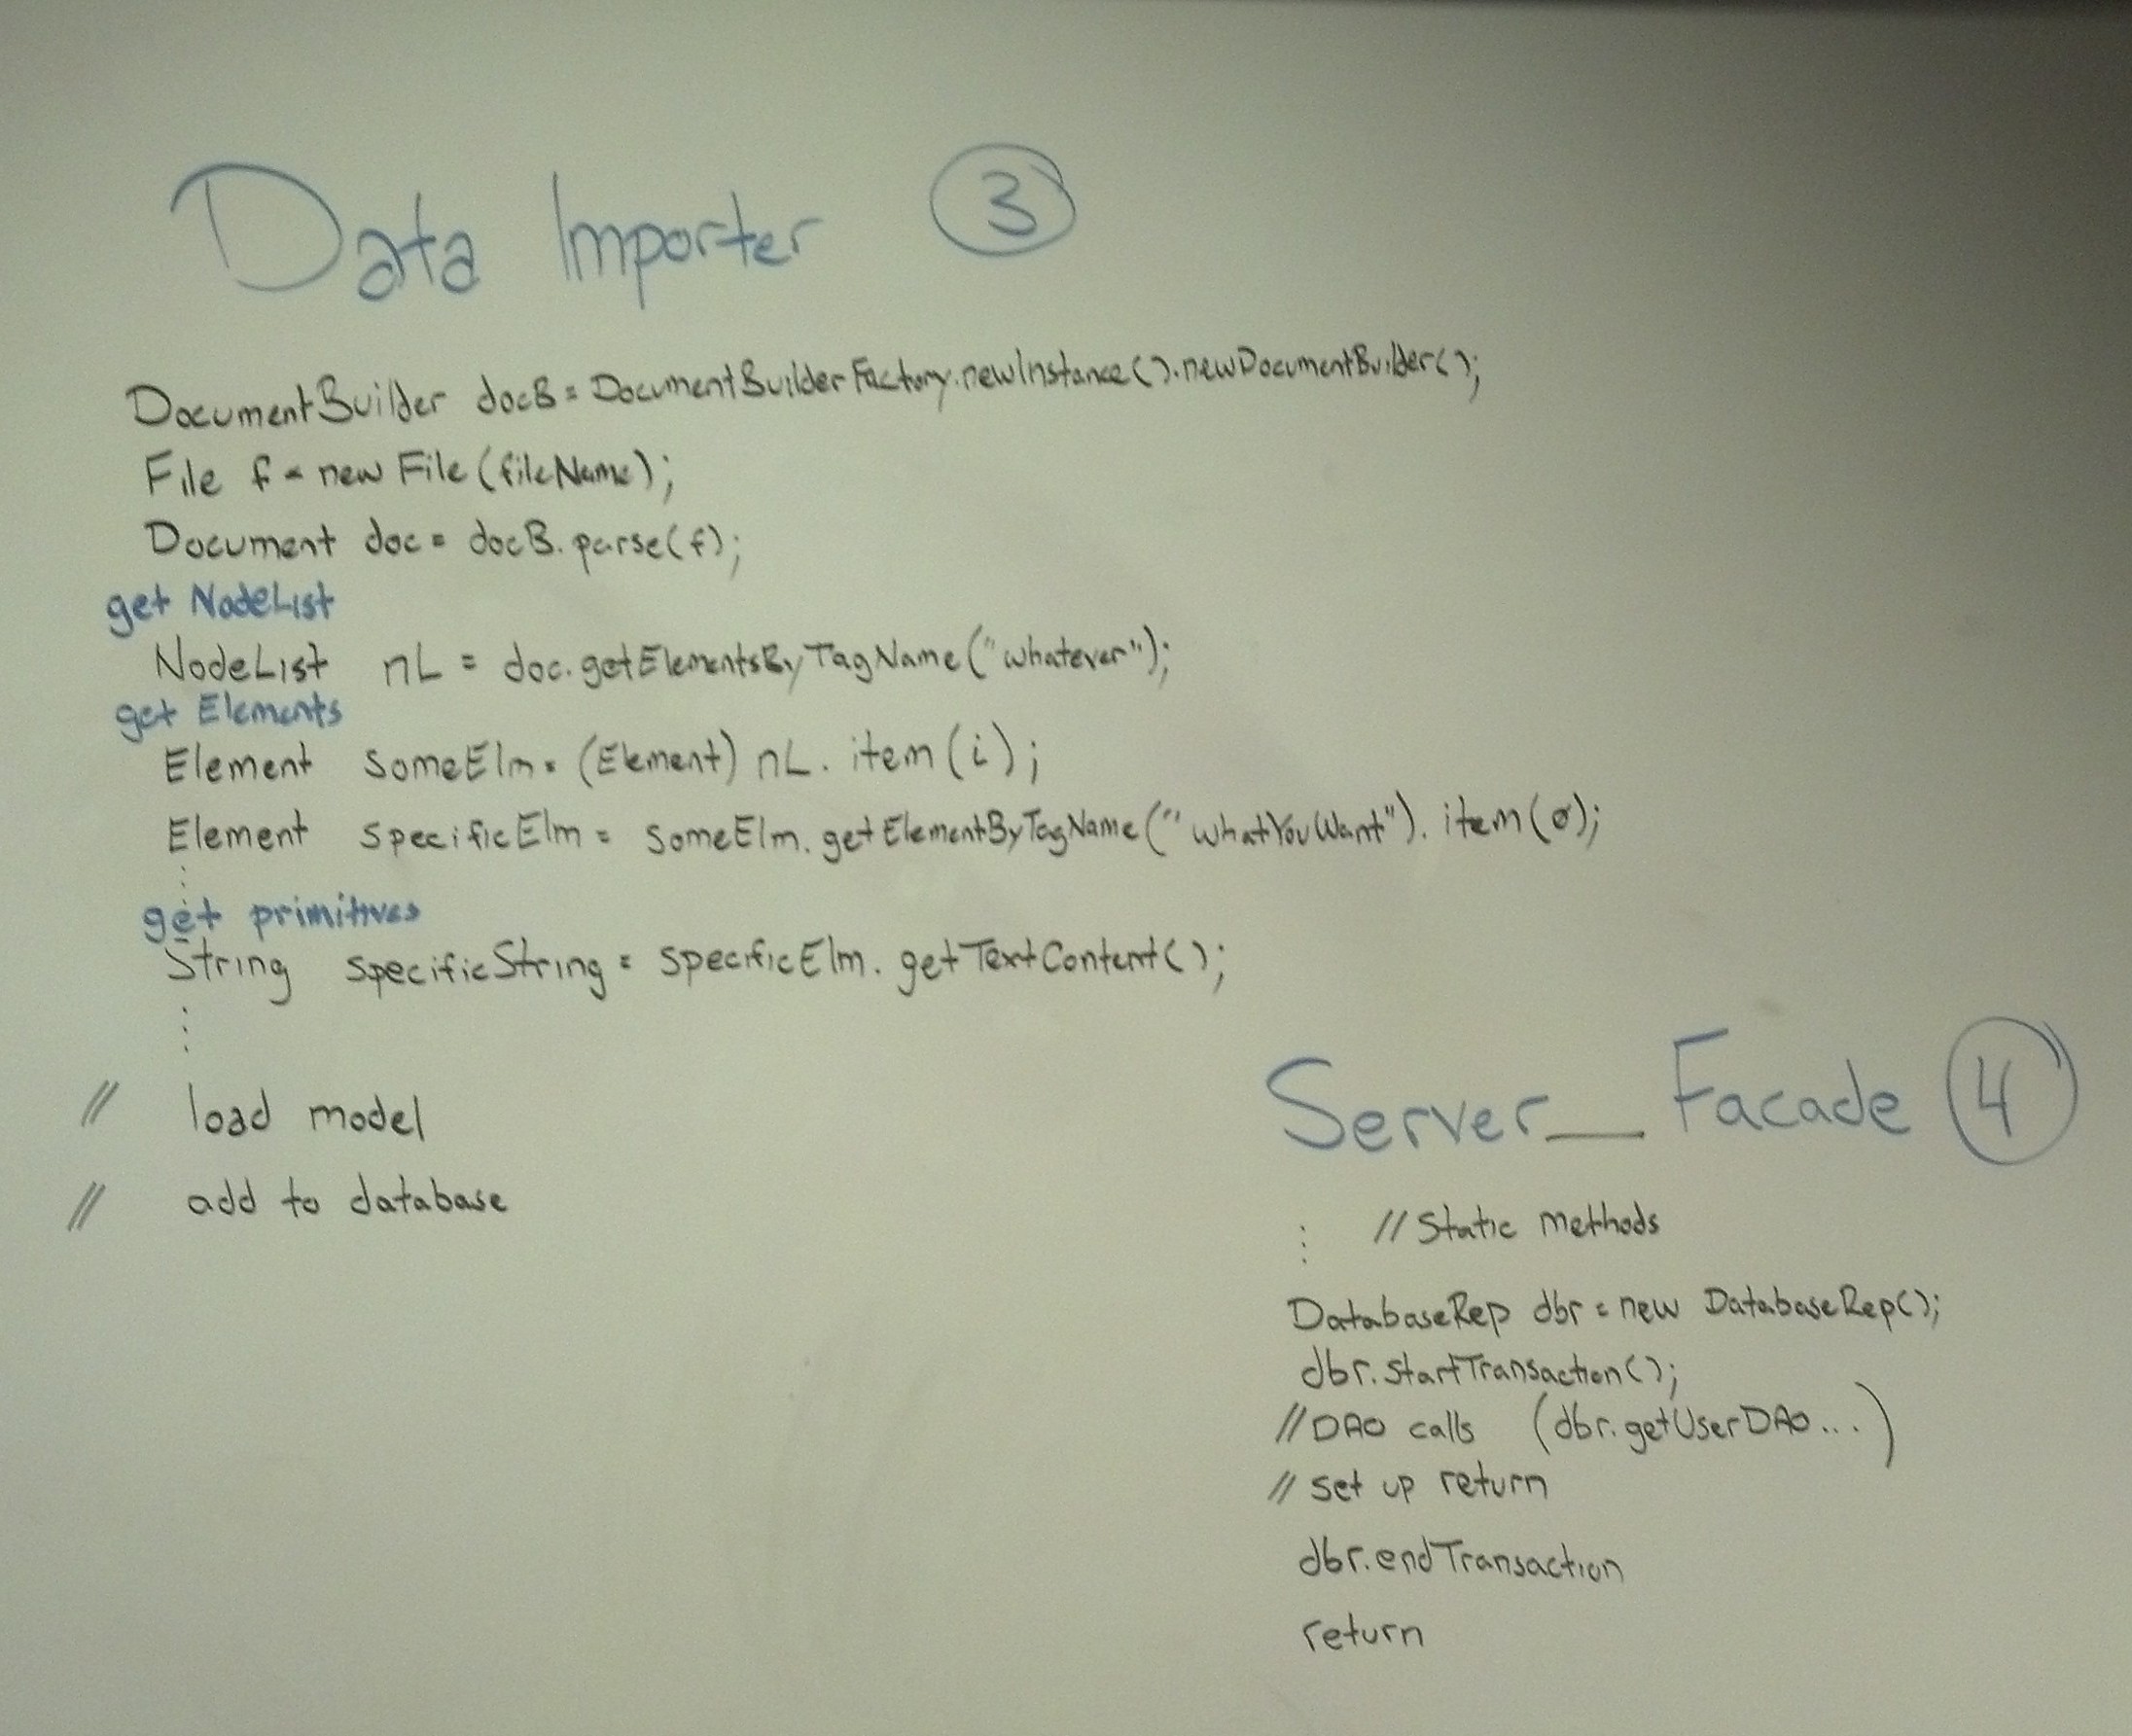 Data Importer 3
DocumentBuilder docB = DocumentBuilderFactory.newInstance().newDocumentBuilder();
File f = new File(fileName);
Document doc = docB.parse(f);
get NodeList
NodeList nL = doc.getElementsByTagName("whatever");
get Elements
Element someElm = (Element) nL.item(i);
Element specificElm = someElm.getElementByTagName("whatYouWant").item(0);
⋮
get primitives
String specificString = specificElm.getTextContent();
⋮
// load model
// add to database
Server_Facade 4
⋮ // Static methods
DatabaseRep dbr = new DatabaseRep();
dbr.startTransaction();
// DAO calls (dbr.getUserDAO...)
// set up return
dbr.endTransaction
return